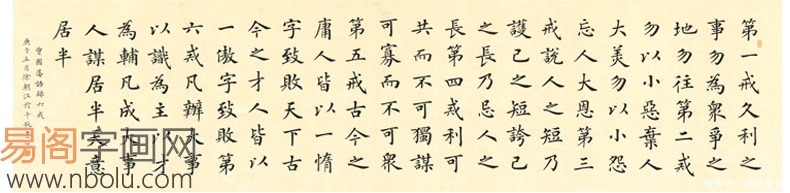 第一戒久利之
事勿為衆爭之
地勿往第二戒
勿以小惡棄人
大美勿以小怨
忘人大恩第三
戒說人之短乃
護己之短誇己
之長乃忌人之
長第四戒利可
共而不可獨謀
可寡而不可衆
第五戒古今之
庸人皆以一惰
字致敗天下古
今之才人皆以
一傲字致敗第
六戒凡辦大事
以識為主以才
為輔凡成大事
人謀居半天意
居半
曾國藩語錄六戒
庚子五月徐朝江於千秋
易阁字画网
www.nbolu.com